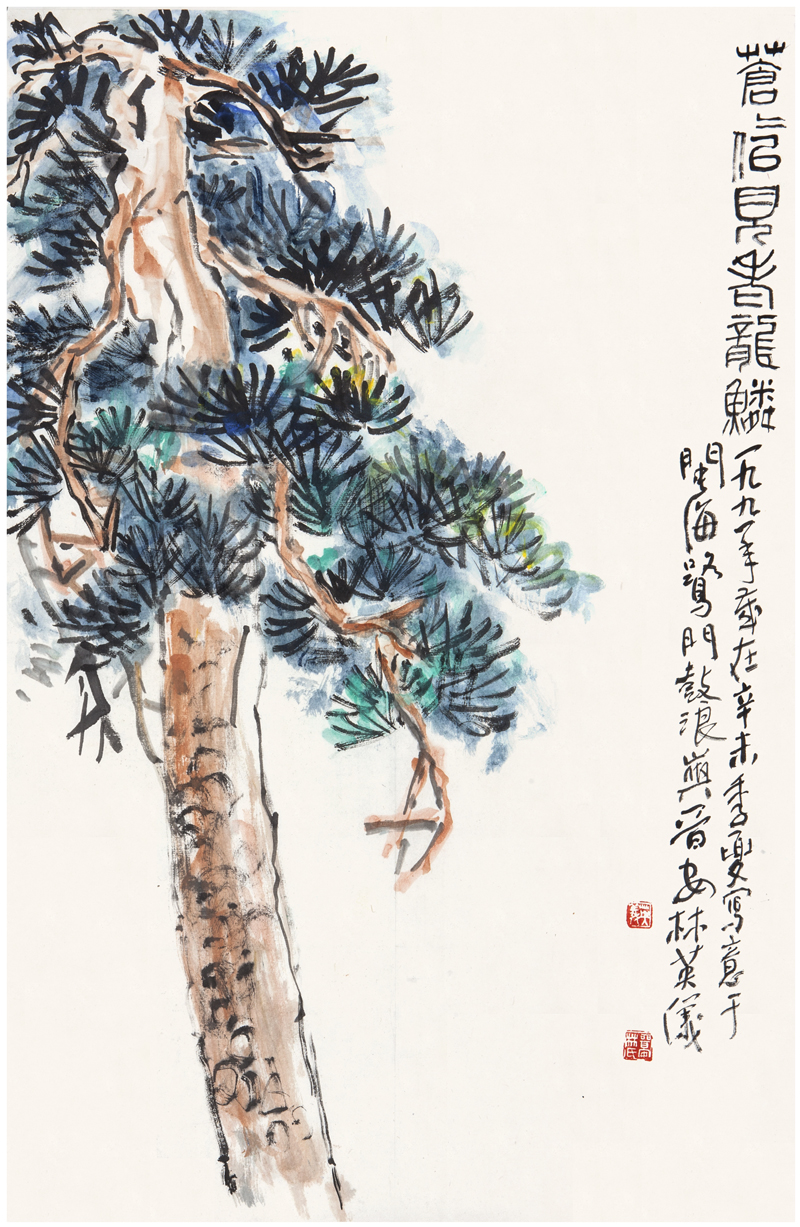 蒼〻佀見老龍鱗
一九九一年歲在辛未季夏寫意于
閩海鷺門鼓浪嶼晉安林英儀
英儀